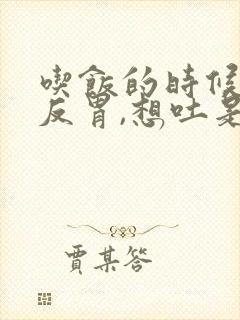 喫飯的時候
反胃,想吐是
賈某答